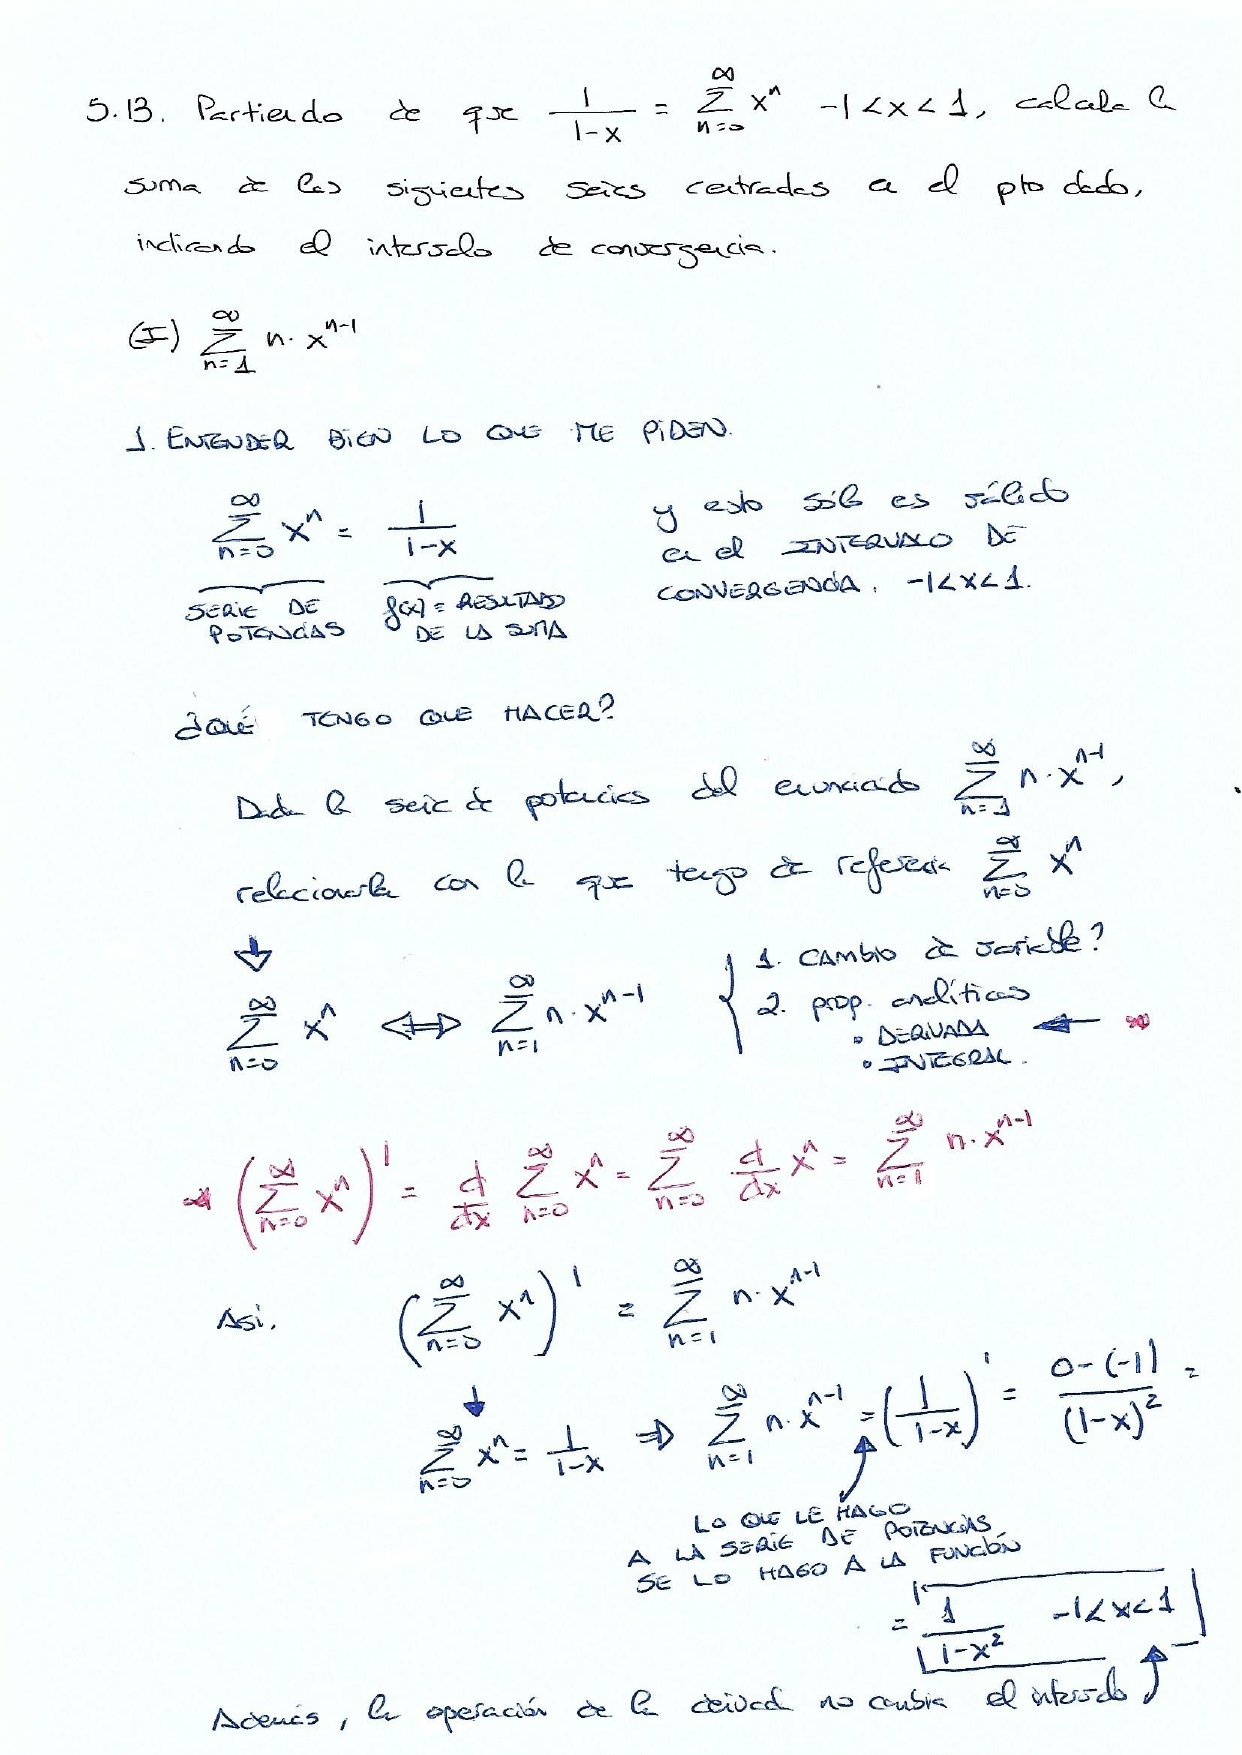 5.13. Partiendo de que 1/(1-x) = Σ_{n=0}^{∞} x^n -1<x<1, calcula la
suma de las siguientes series centradas en el pto dado,
indicando el intervalo de convergencia.
(I) Σ_{n=1}^{∞} n · x^{n-1}
1. ENTENDER BIEN LO QUE ME PIDEN.
Σ_{n=0}^{∞} x^n = 1/(1-x)
SERIE DE POTENCIAS
f(x) = RESULTADO DE LA SUMA
y esto sólo es válido
en el INTERVALO DE
CONVERGENCIA. -1<x<1.
¿QUÉ TENGO QUE HACER?
Dada la serie de potencias del enunciado Σ_{n=1}^{∞} n · x^{n-1},
relacionarla con la que tengo de referencia Σ_{n=0}^{∞} x^n
↓
Σ_{n=0}^{∞} x^n ⟺ Σ_{n=1}^{∞} n · x^{n-1}
1. CAMBIO de variable?
2. prop. analíticas
• DERIVADA ← *
• INTEGRAL.
* (Σ_{n=0}^{∞} x^n)' = d/dx Σ_{n=0}^{∞} x^n = Σ_{n=0}^{∞} d/dx x^n = Σ_{n=1}^{∞} n · x^{n-1}
Así, (Σ_{n=0}^{∞} x^n)' = Σ_{n=1}^{∞} n · x^{n-1}
↓
Σ_{n=0}^{∞} x^n = 1/(1-x) ⇒ Σ_{n=1}^{∞} n · x^{n-1} = (1/(1-x))' = (0-(-1))/(1-x)^2 =
LO QUE LE HAGO
A LA SERIE DE POTENCIAS,
SE LO HAGO A LA FUNCIÓN
= 1/(1-x^2) -1<x<1
Además, la operación de la derivada no cambia el intervalo